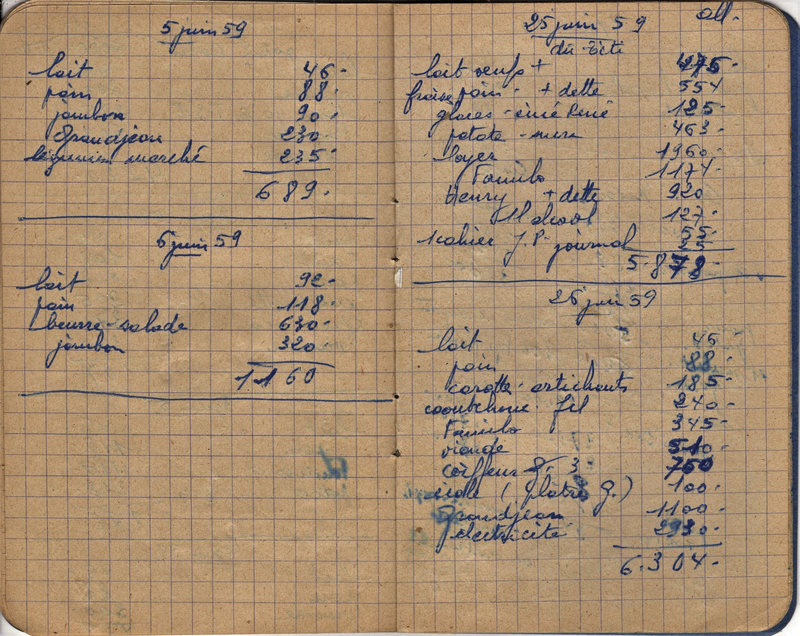 5 juin 59
lait 46-
pain 88-
jambon 90-
Grandjean 230-
légumes marché 235-
689-
6 juin 59
lait 92-
pain 118-
beurre-salade 630-
jambon 320-
1160
25 juin 59 all.
du
lait oeufs + 475-
fraise pain - + dette 554
glaces - ciné René 125-
patate - sucre 463-
loyer 1960-
Familo 1174-
Henry + dette 920
Alcool 127-
1 cahier J.P. journal 55-
5.878-
26 juin 59
lait 46
pain 88-
carotte - artichauts 185-
caoutchouc - fil 240-
Familo 345-
viande 510-
coiffeur 750
école ( g.) 100-
Grandjean 1100-
électricité 2930-
6.304-